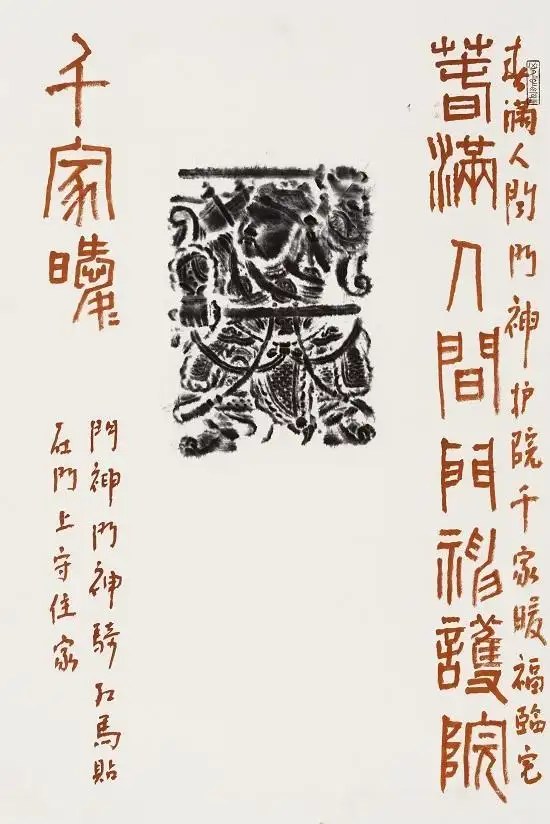 春滿人間门神护院千家暖福臨宅
春滿人間門神護院
千家暖
門神门神騎红馬貼
在门上守住家